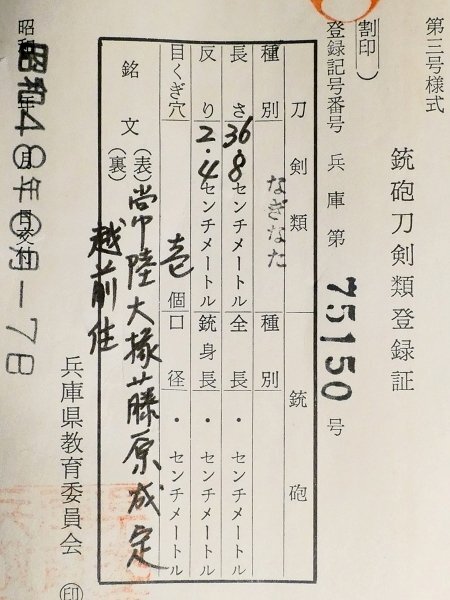 第三号様式
銃砲刀剣類登録証
割印
登録記号番号 兵庫 第 75150 号
刀剣類 銃砲
種別 なぎなた 種別
長さ 36.8 センチメートル 全長 ・ センチメートル
反り 2.4 センチメートル 銃身長 ・ センチメートル
目くぎ穴 壱 個 口径 ・ センチメートル
銘文 (表) 常陸大掾藤原成定
(裏) 越前住
昭和48年 月 日交付
兵庫県教育委員会 印